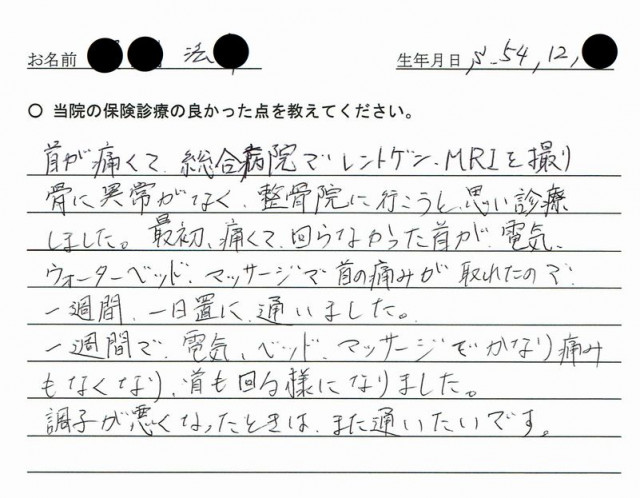 お名前 法 生年月日 S.54,12,
○ 当院の保険診療の良かった点を教えてください。
首が痛くて、総合病院でレントゲン、MRIを撮り
骨に異常がなく、整骨院に行こうと、思い診療
しました。最初、痛くて、回らなかった首が、電気、
ウォーターベッド、マッサージで首の痛みが取れたので
一週間、一日置に、通いました。
一週間で、電気、ベッド、マッサージでかなり痛み
もなくなり、首も回る様になりました。
調子が悪くなったときは、また通いたいです。